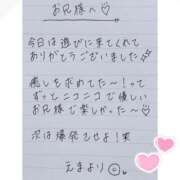 お兄様へ♡
今日は遊びに来てくれて
ありがとうございました
癒しを求めてた〜!って
ずっとニコニコで優しい
お兄様で楽しかった〜♡
次は爆発させよ!笑
えまより☺